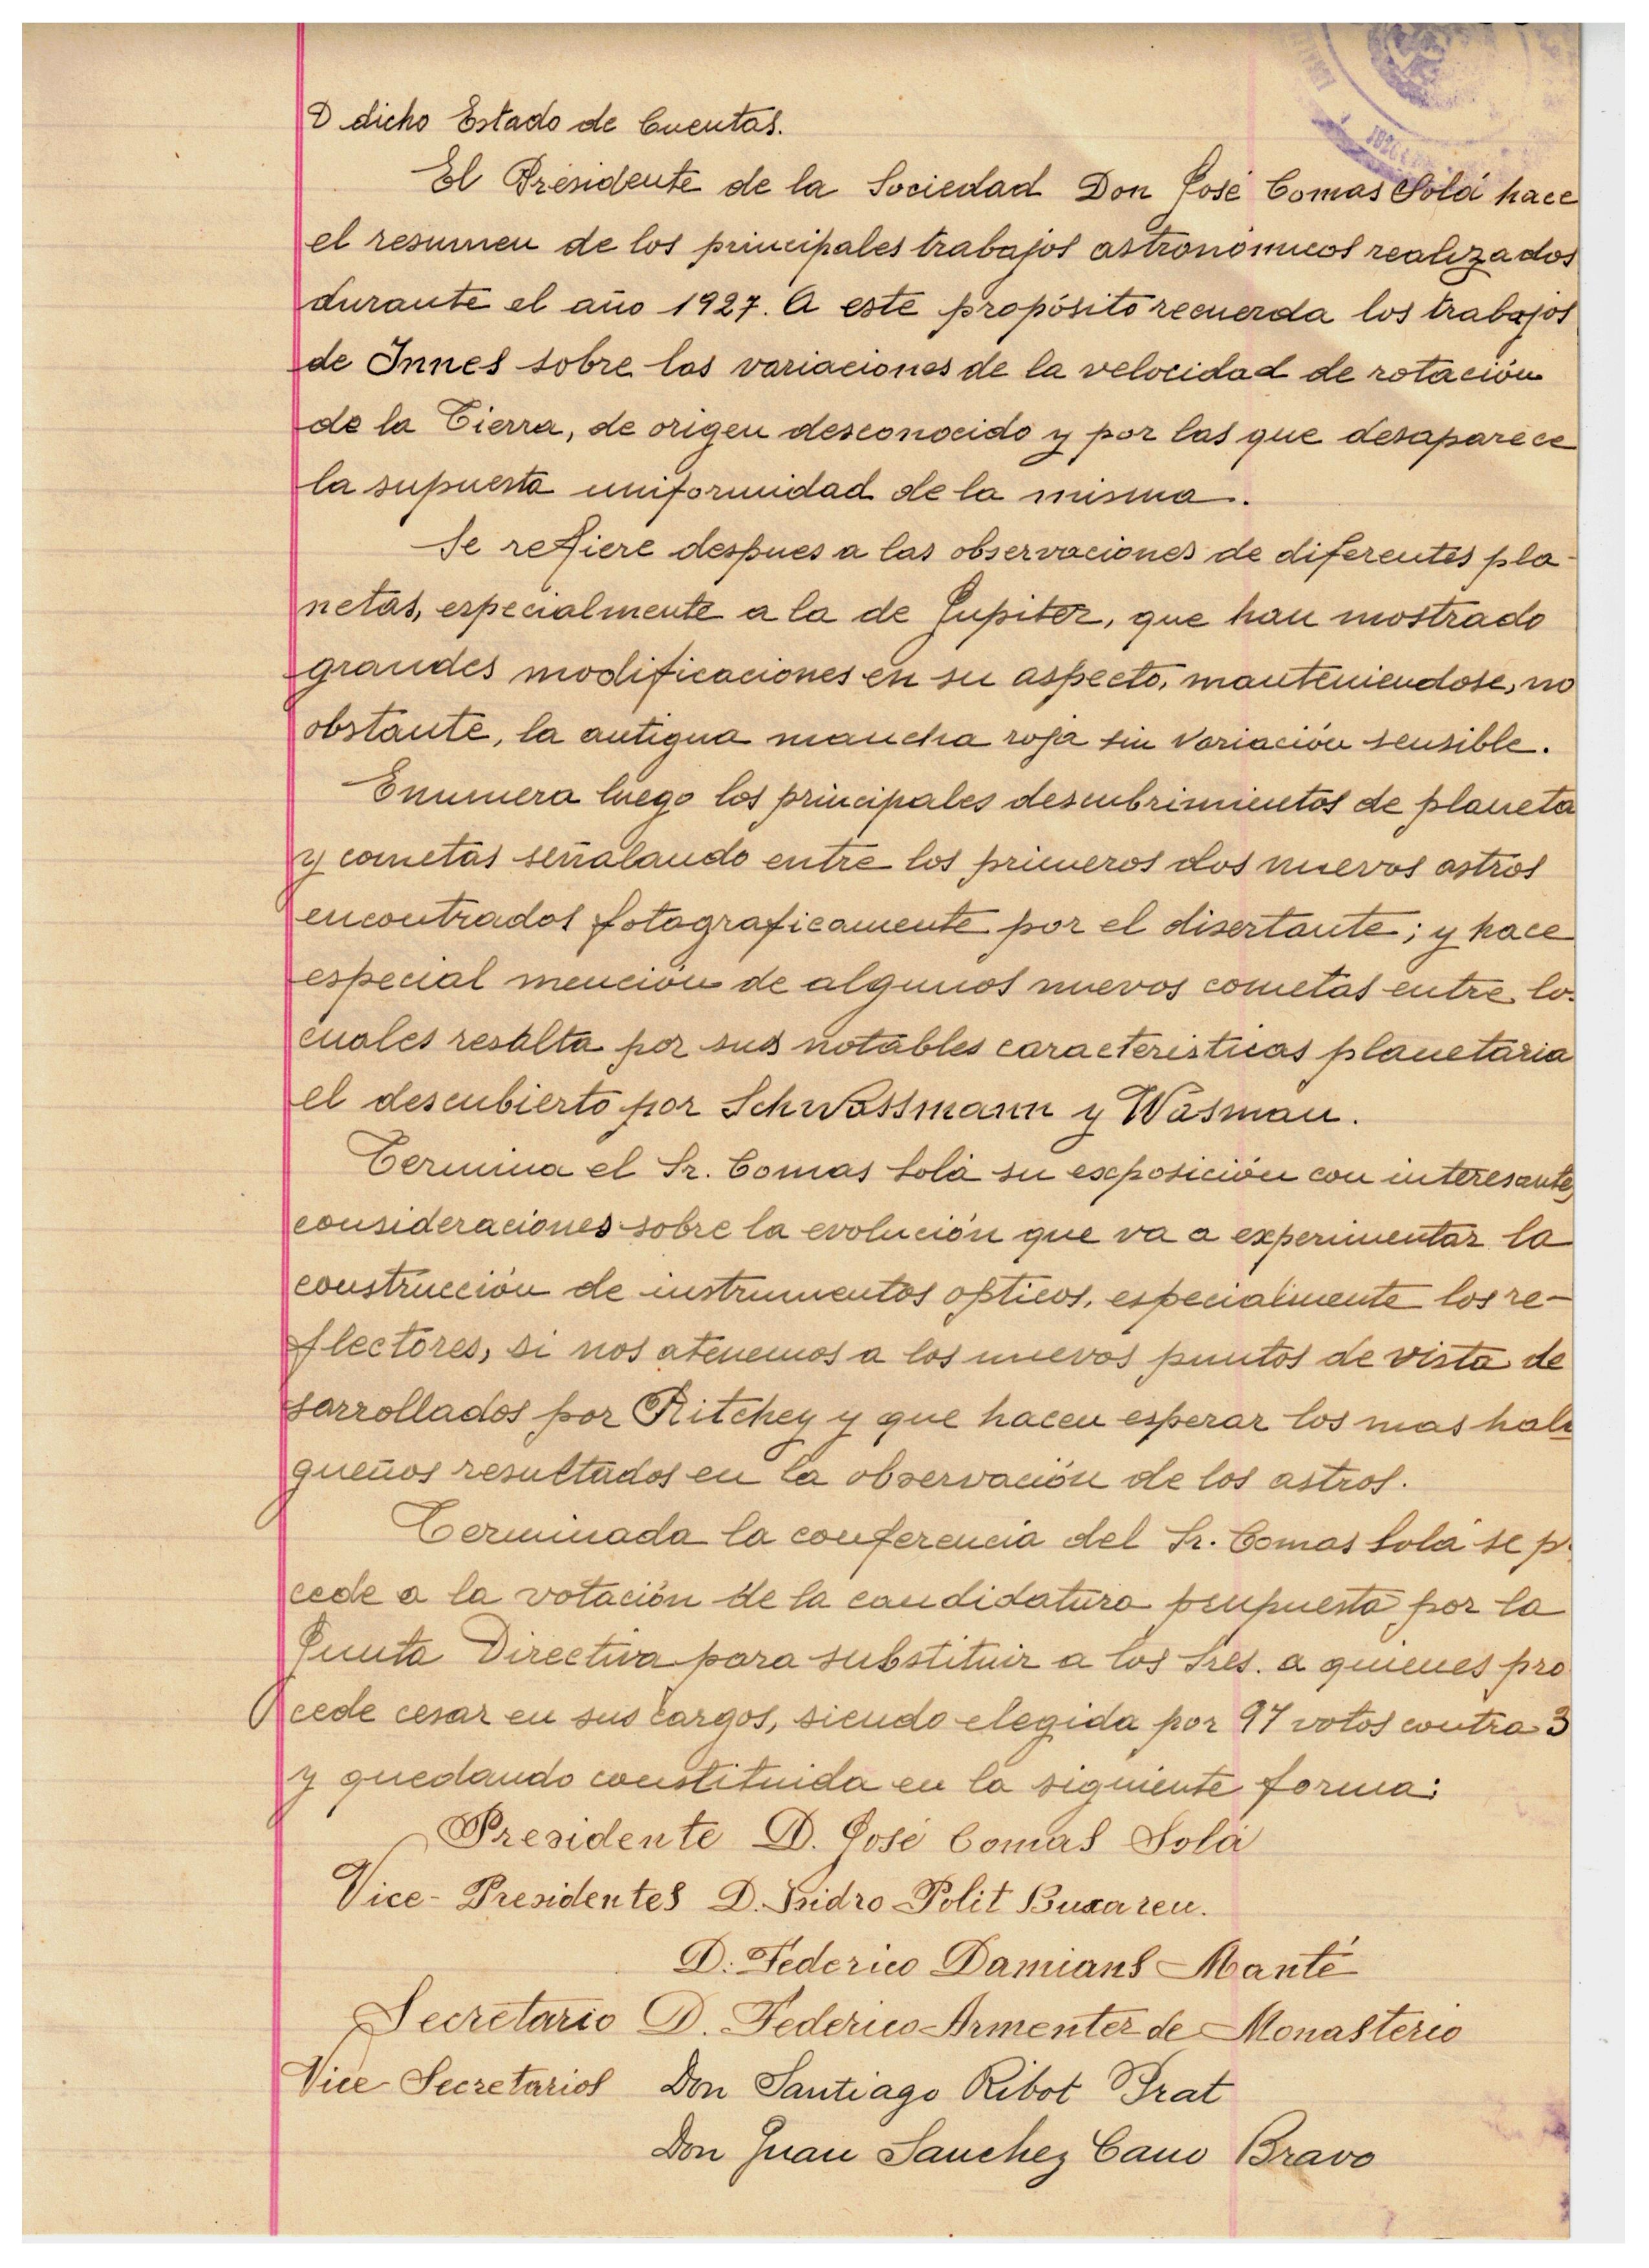 D dicho Estado de Cuentas.
El Presidente de la Sociedad Don José Comas Solá hace
el resumen de los principales trabajos astronómicos realizados
durante el año 1927. A este propósito recuerda los trabajos
de Innes sobre las variaciones de la velocidad de rotación
de la Tierra, de origen desconocido y por las que desaparece
la supuesta uniformidad de la misma.
Se refiere despues a las observaciones de diferentes pla-
netas, especialmente a la de Jupiter, que han mostrado
grandes modificaciones en su aspecto, manteniendose, no
obstante, la antigua mancha roja sin variación sensible.
Enumera luego los principales descubrimientos de planeta
y cometas señalando entre los primeros dos nuevos astros
encontrados fotograficamente por el disertante; y hace
especial mención de algunos nuevos cometas entre lo
cuales resalta por sus notables caracteristicas planetaria
el descubierto por Schwassmann y Wasman.
Termina el Sr. Comas Solá su exposición con interesante
consideraciones sobre la evolución que va a experimentar la
construcción de instrumentos opticos, especialmente los re-
flectores, si nos atenemos a los nuevos puntos de vista de
sarrollados por Ritchey y que hacen esperar los mas hala
gueños resultados en la observación de los astros.
Terminada la conferencia del Sr. Comas Solá se p
cede a la votación de la candidatura propuesta por la
Junta Directiva para substituir a los Sres. a quienes pro
cede cesar en sus cargos, siendo elegida por 97 votos contra 3
y quedando constituida en la siguiente forma:
Presidente D. José Comas Solá
Vice-Presidentes D. Isidro Polit Buxareu.
D. Federico Damians Manté
Secretario D. Federico Armenter de Monasterio
Vice Secretarios Don Santiago Ribot Prat
Don Juan Sanchez Cano Bravo